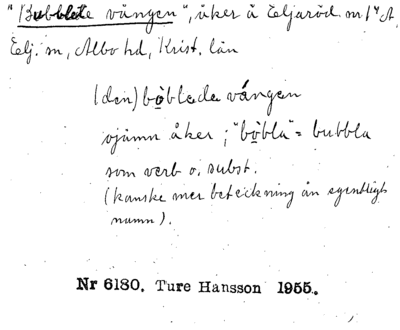 "Bubblete vången", åker å Eljaröd nr 1 4 A,
Elj. sn, Albo hd, Krist. län
(den) böblede vången
ojämn åker; "böbla" = bubbla
som verb o. subst.
(kanske mer beteckning än egentligt
namn).
Nr 6180. Ture Hansson 1955.